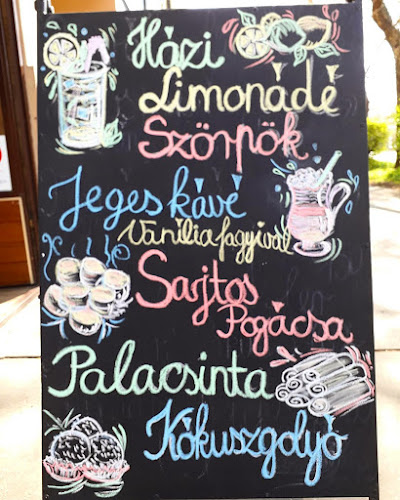 Házi
Limonádé
Szörpök
Jegeskávé
Vanília fagyival
Sajtos
Pogácsa
Palacsinta
Kókuszgolyó